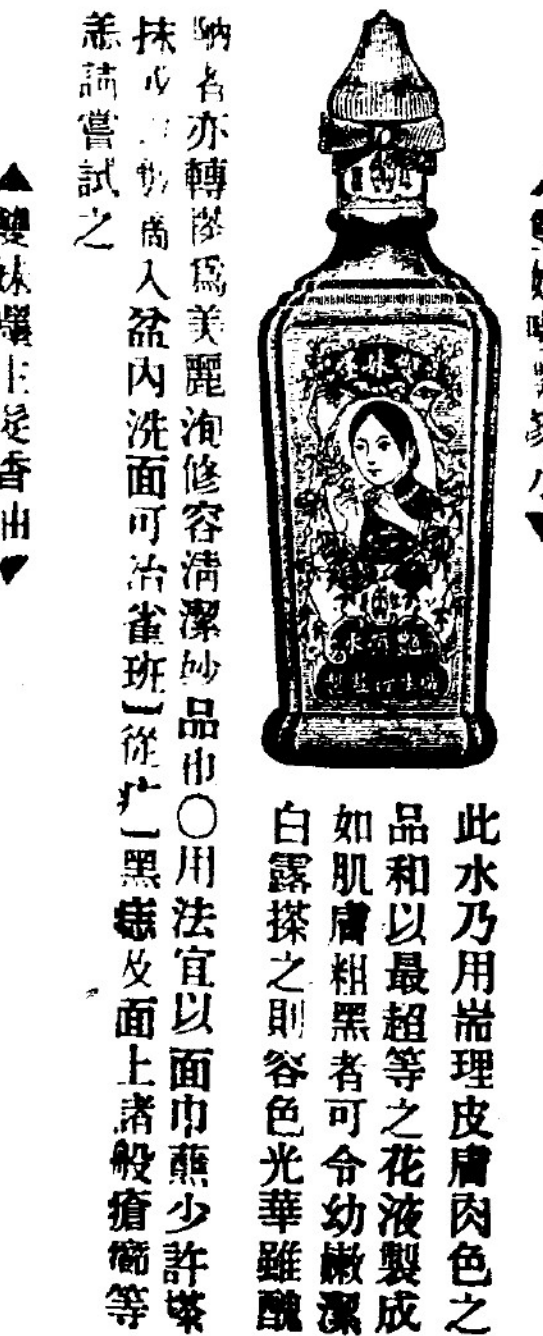 此水乃用當理皮膚肉色之
品和以最超等之花液製成
如肌膚粗黑者可令幼嫩潔
白露搽之則容色光華雖醜
者亦轉為美麗洵修容清潔妙品也〇用法宜以面巾蘸少許搽
抹入盆內洗面可治雀班【從疒】黑痣及面上諸般瘡癤等
恙請嘗試之
▲雙妹嚜生髮香油▼